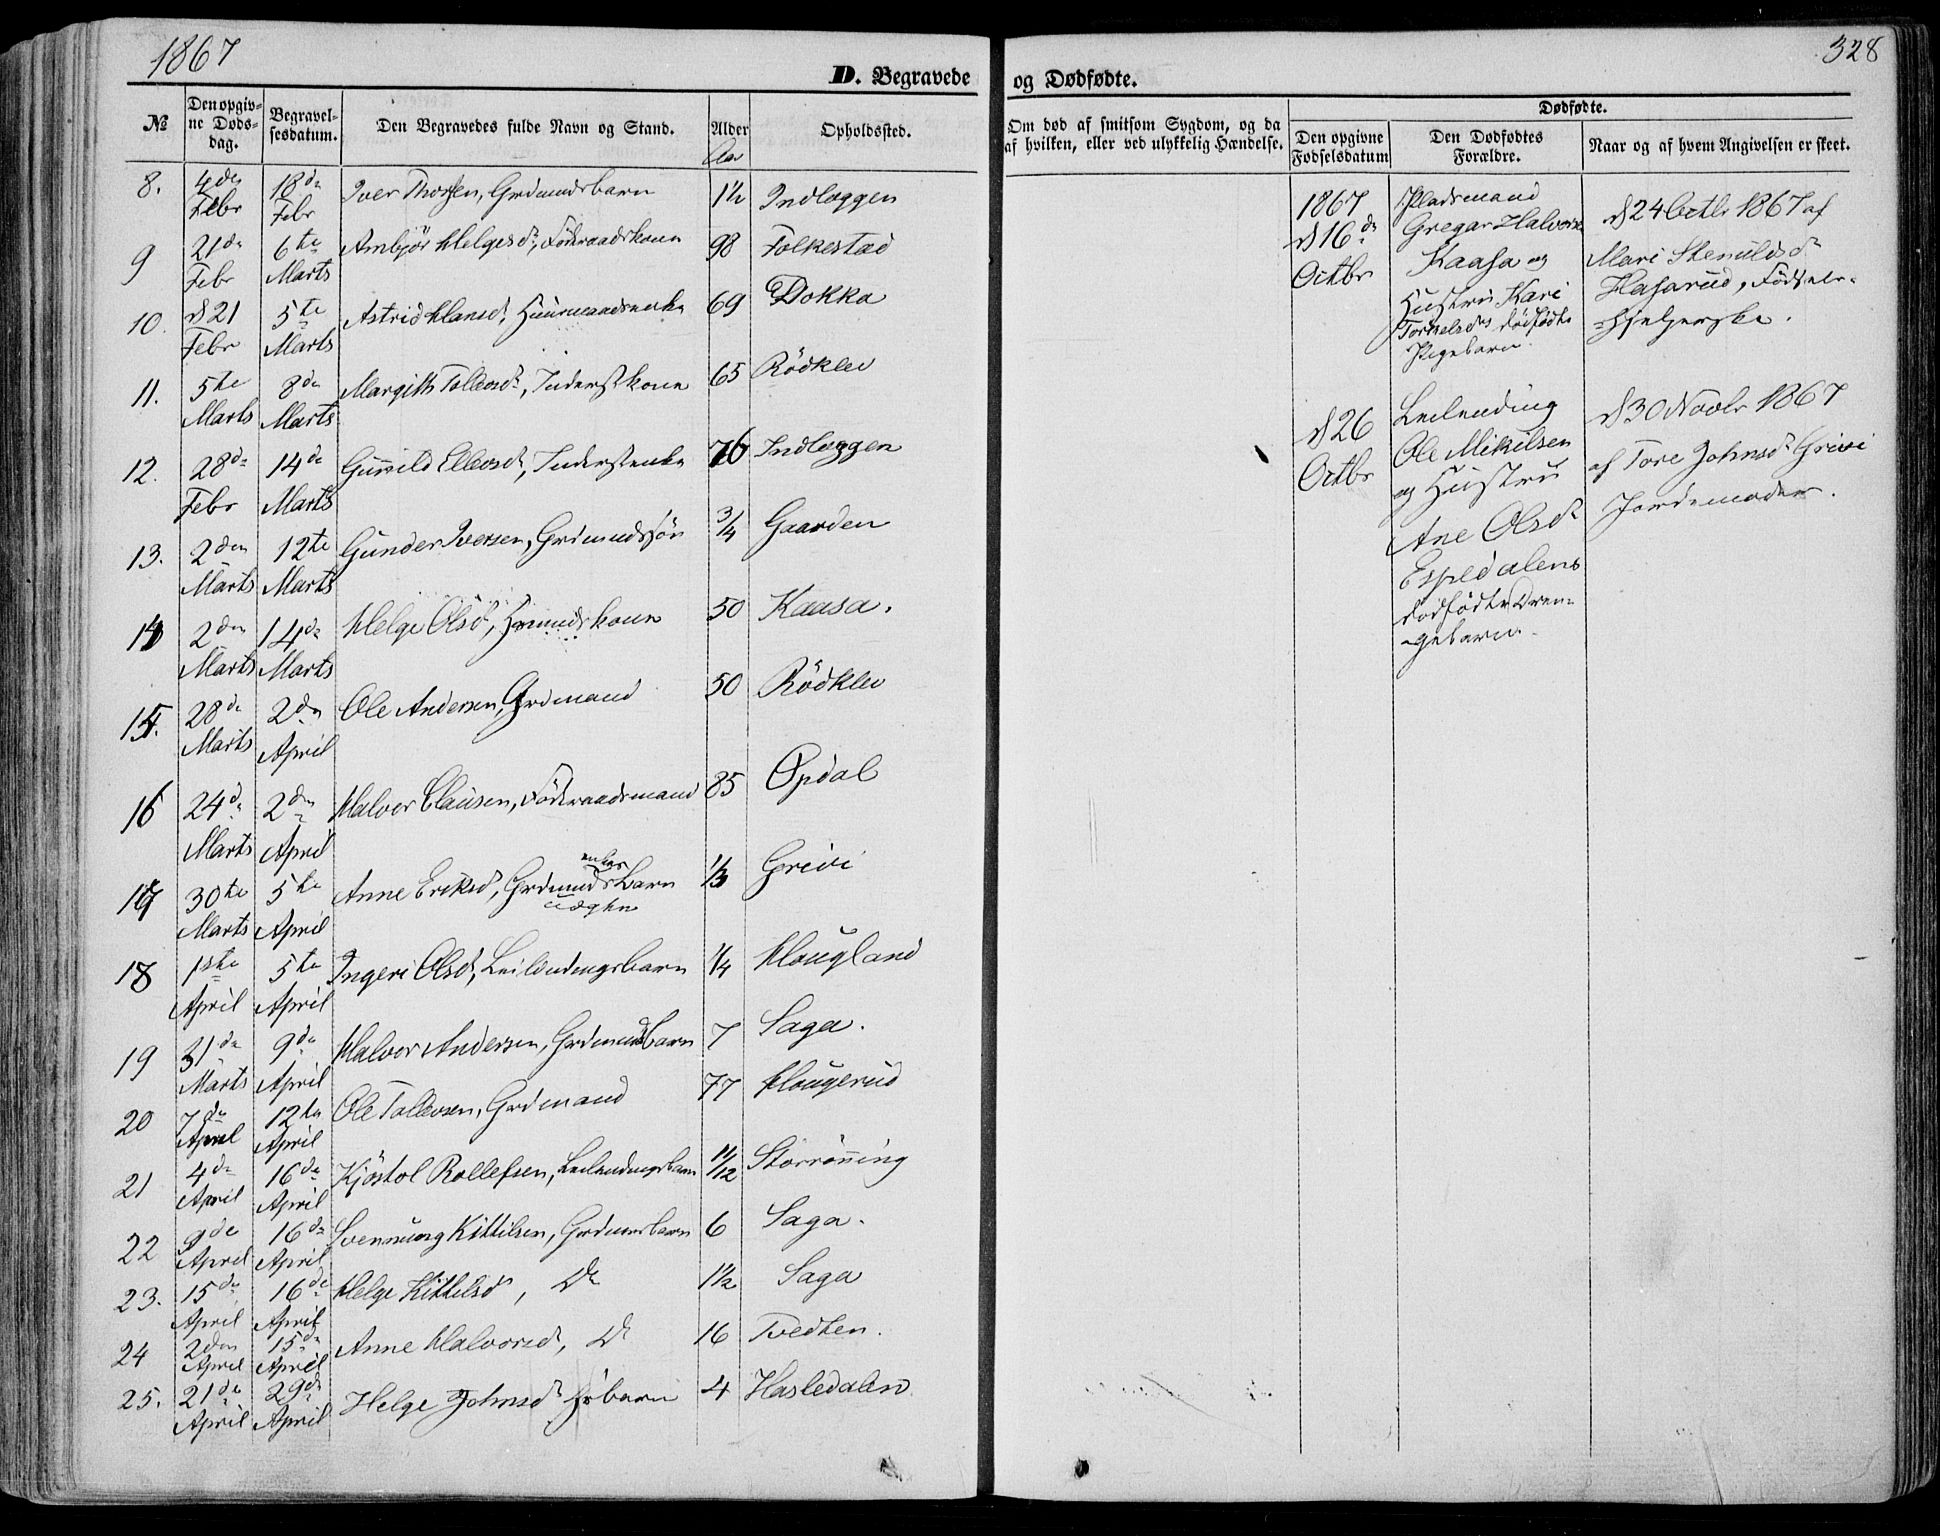 1867
328
D. Begravede og Dødfødte.
№
Den opgiv-
ne Døds-
dag.
Begravel-
sesdatum.
Den Begravedes fulde Navn og Stand.
Alder
Aar
Opholdssted.
Om død af smitsom Sygdom, og da
af hvilken, eller ved ulykkelig Hændelse.
Dødfødte.
Den opgivne
Fødselsdatum
Den Dødfødtes
Forældre.
Naar og af hvem Angivelsen er skeet.
8. 4de Febr 18de Febr Iver Thorsen, Grdmandsbarn 1½ Indlæggen
9 21de Febr 6te Marts Ambjör Helgesd, Föderaadskone 98 Folkestad
10. d 21 Febr 5te Marts Astrid Hansd, Huusmandsenke 69 Dokka
11. 5te Marts 8de Marts Margith Tollevsd, Inderstkone 65 Rödklev
12. 28de Febr 14de Marts Gunild Ellevsd, Inderstenke 76 Indlæggen
13. 2den Marts 12te Marts Gunder Iversen, Grdmandssön 3/4 Gaarden
14 2den Marts 14de Marts Helge Olsd, Hsmandskone 50 Kaasa.
15. 28de Marts 2den April Ole Andersen, Grdmand 50 Rödklev
16 24de Marts 2den April Halvor Clausen, Föderaadsmand 85 Opdal
17 30te Marts 5te April Anne Eriksd, Grdmands enkes Barn uægte 1/3 Grivi
18 1ste April 5te April Ingeri Olsd, Leilendingsbarn 1/4 Hougland
19 31de Marts 9de April Halvor Andersen, Grdmandsbarn 7 Saga.
20 7de April 12te April Ole Tollevsen, Grdmand 77 Hougerud
21 4de April 16de April Kjöstol Rollefsen, Leilendingsbarn 11/12 Storröning
22 9de April 16de April Svennung Kittilsen, Grdmandsbarn 6 Saga.
23. 15de April 16de April Helge Kittelsd, Do 1½ Saga
24 2den April 15de April Anne Halvorsd, Do 16 Tvedten.
25. 21de April 29de April Helge Johnsd Hsbarn 4 Hasledalen
1867
d 16de
Octbr
Pladsmand
Gregar Halvorsen
Kaasa og
Hustru Kari
Torkelsdes dödfödte
Pigebarn.
d 24 Octbr 1867 af
Mari Stenulsd
Hasarud, Födsels-
hjelperske.
d 26
Octbr
Leilending
Ole Mikilsen
og Hustru
Ane Olsd
Espedalens
dödfödte Dren-
gebarn.
d 30 Novbr 1867
af Tore Johnsd Grivi
Jordemoder.